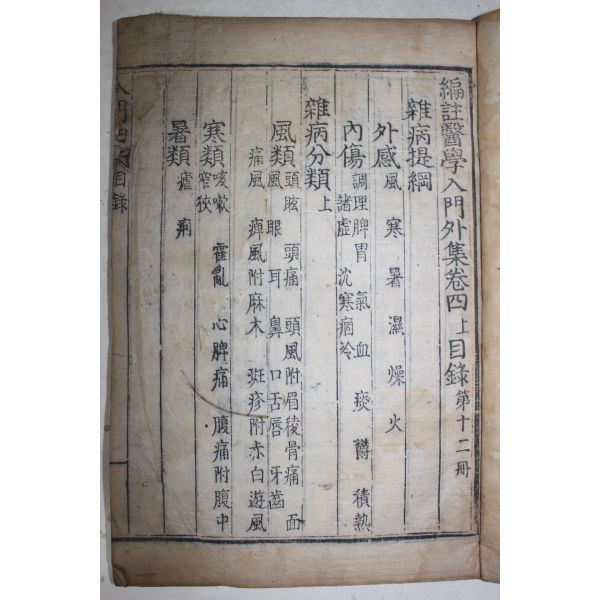 編註醫學入門外集卷四上目錄 第十二冊
雜病提綱
外感 風 寒 暑 濕 燥 火
內傷 調理脾胃 氣 血 痰 鬱 積熱
諸虛 沈寒痼冷
雜病分類 上
風類 頭眩 頭痛 頭風附眉稜骨痛 面
風 眼 耳 鼻 口舌唇 牙齒
痛風 痺風附麻木 斑疹附赤白遊風
寒類 咳嗽 霍亂 心脾痛 腹痛附腹中
窄狹
暑類 瘧 痢
入門四 目錄
一